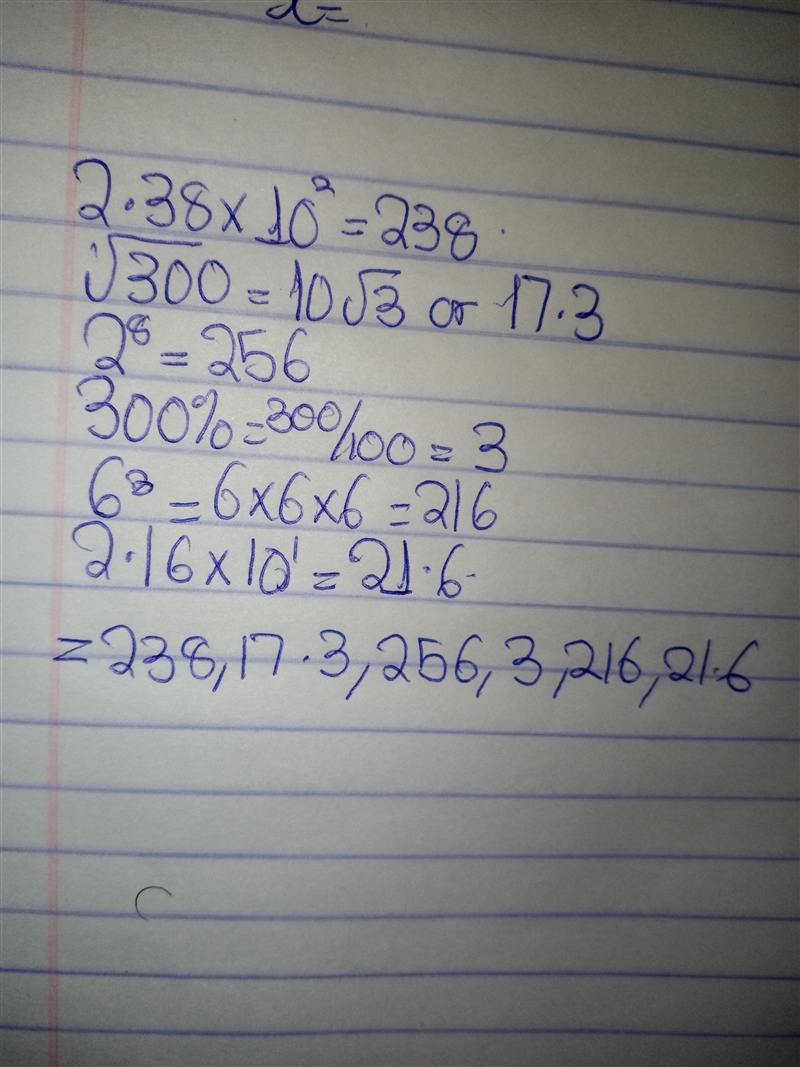 x=
2·38×10² = 238
√300 = 10√3 or 17·3
2⁸ = 256
300% = 300/100 = 3
6³ = 6×6×6 = 216
2·16×10¹ = 21·6
= 238, 17·3, 256, 3, 216, 21·6